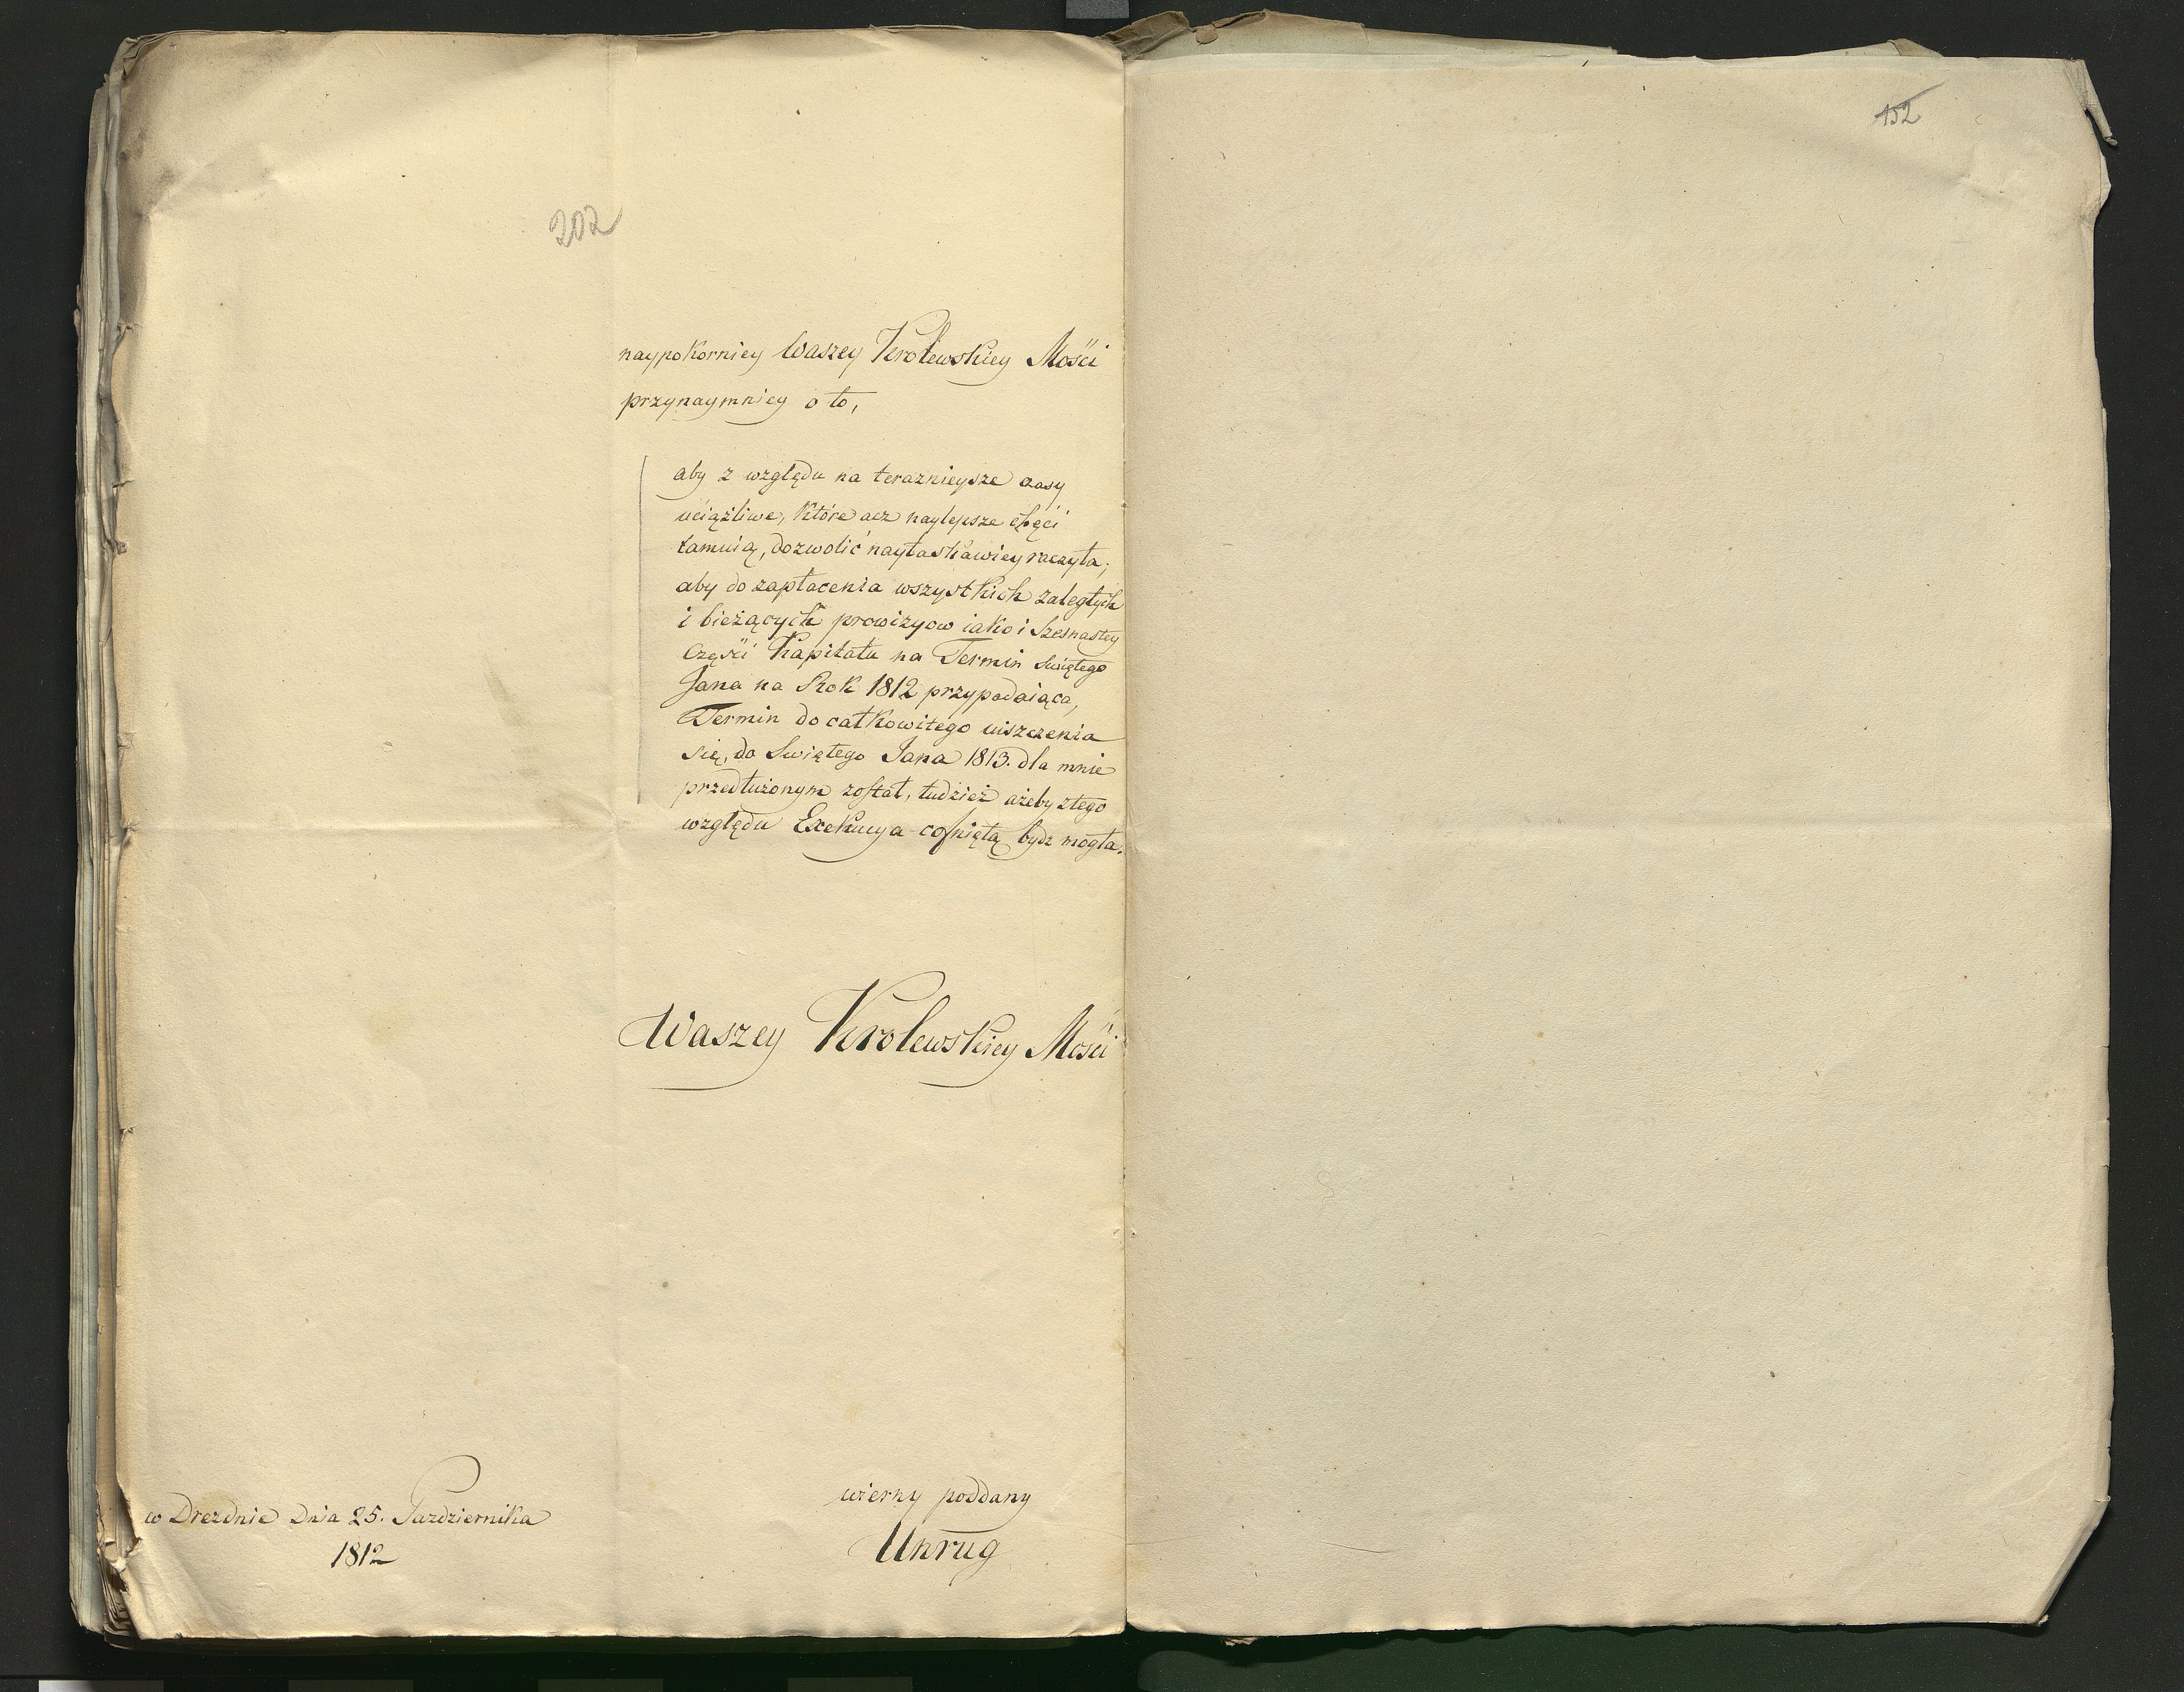 152
202
naypokorniey Waszey Krolewskiey Mości
przynaymniey o to,
aby z względu na teraznieysze czasy
uciążliwe, które acz naylepsze chęci
tamuią, dozwolić nayłaskawiey raczyła,
aby do zapłacenia wszystkich zaległych
i bieżących prowizyow iako i Szesnastey
Części Kapitału na Termin Swiętego
Jana na Rok 1812 przypadaiąca,
Termin do całkowitego uiszczenia
się, do Swiętego Jana 1813. dla mnie
przedłużonym został, tudzież ażeby z tego
względu Exekucya cofniętą bydz mogła.
Waszey Krolewskiey Mości
wierny poddany
Unrug
w Dreznie Dnia 25. Pazdziernika
1812